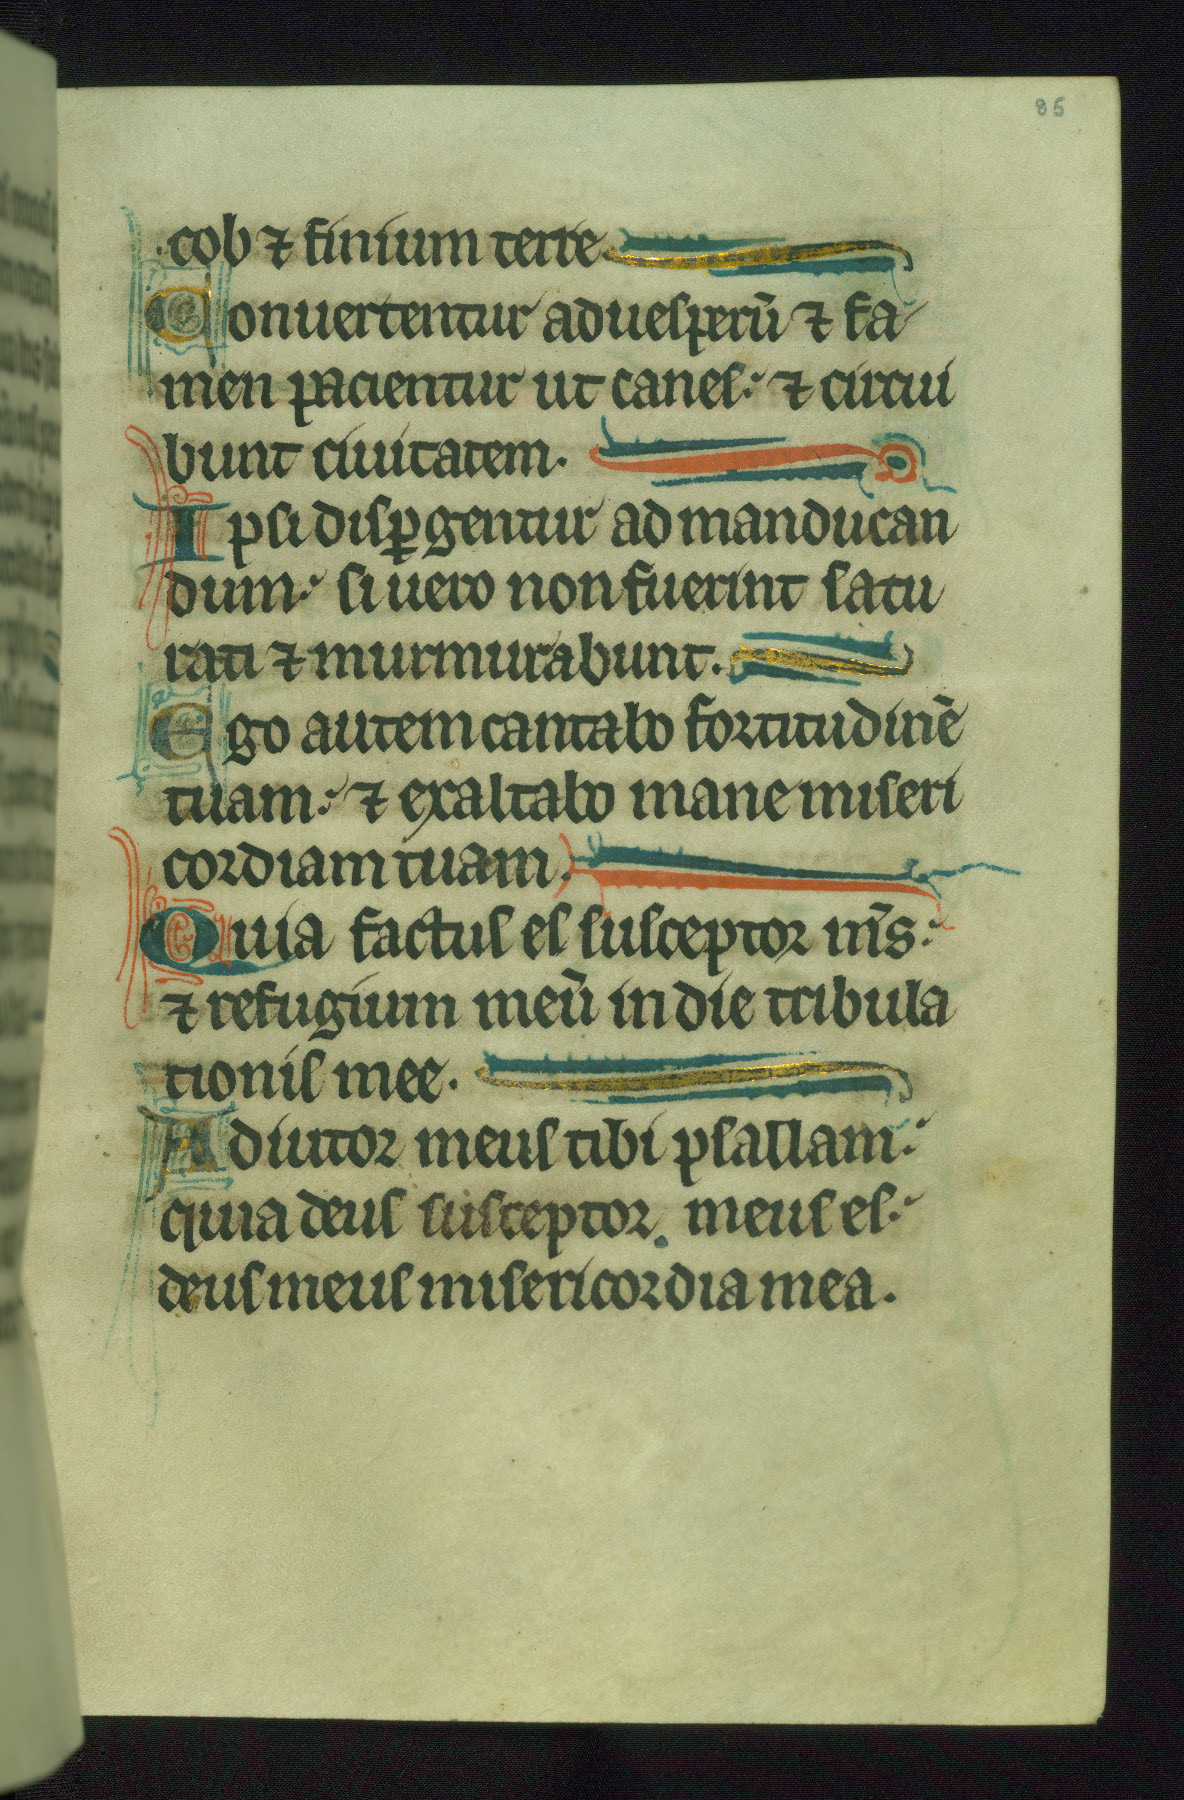 85
cob ⁊ finium terre
Conuertentur ad uesperū ⁊ fa
men pacientur ut canes: ⁊ circui
bunt ciuitatem.
Ipsi disꝑgentur ad manducan
dum: si uero non fuerint satu
rati ⁊ murmurabunt.
Ego autem cantabo fortitudinē
tuam: ⁊ exaltabo mane miseri
cordiam tuam.
Quia factus es susceptor m̄s:
⁊ refugium meū in die tribula
tionis mee.
Adiutor meus tibi psallam:
quia deus susceptor meus es:
deus meus misericordia mea.